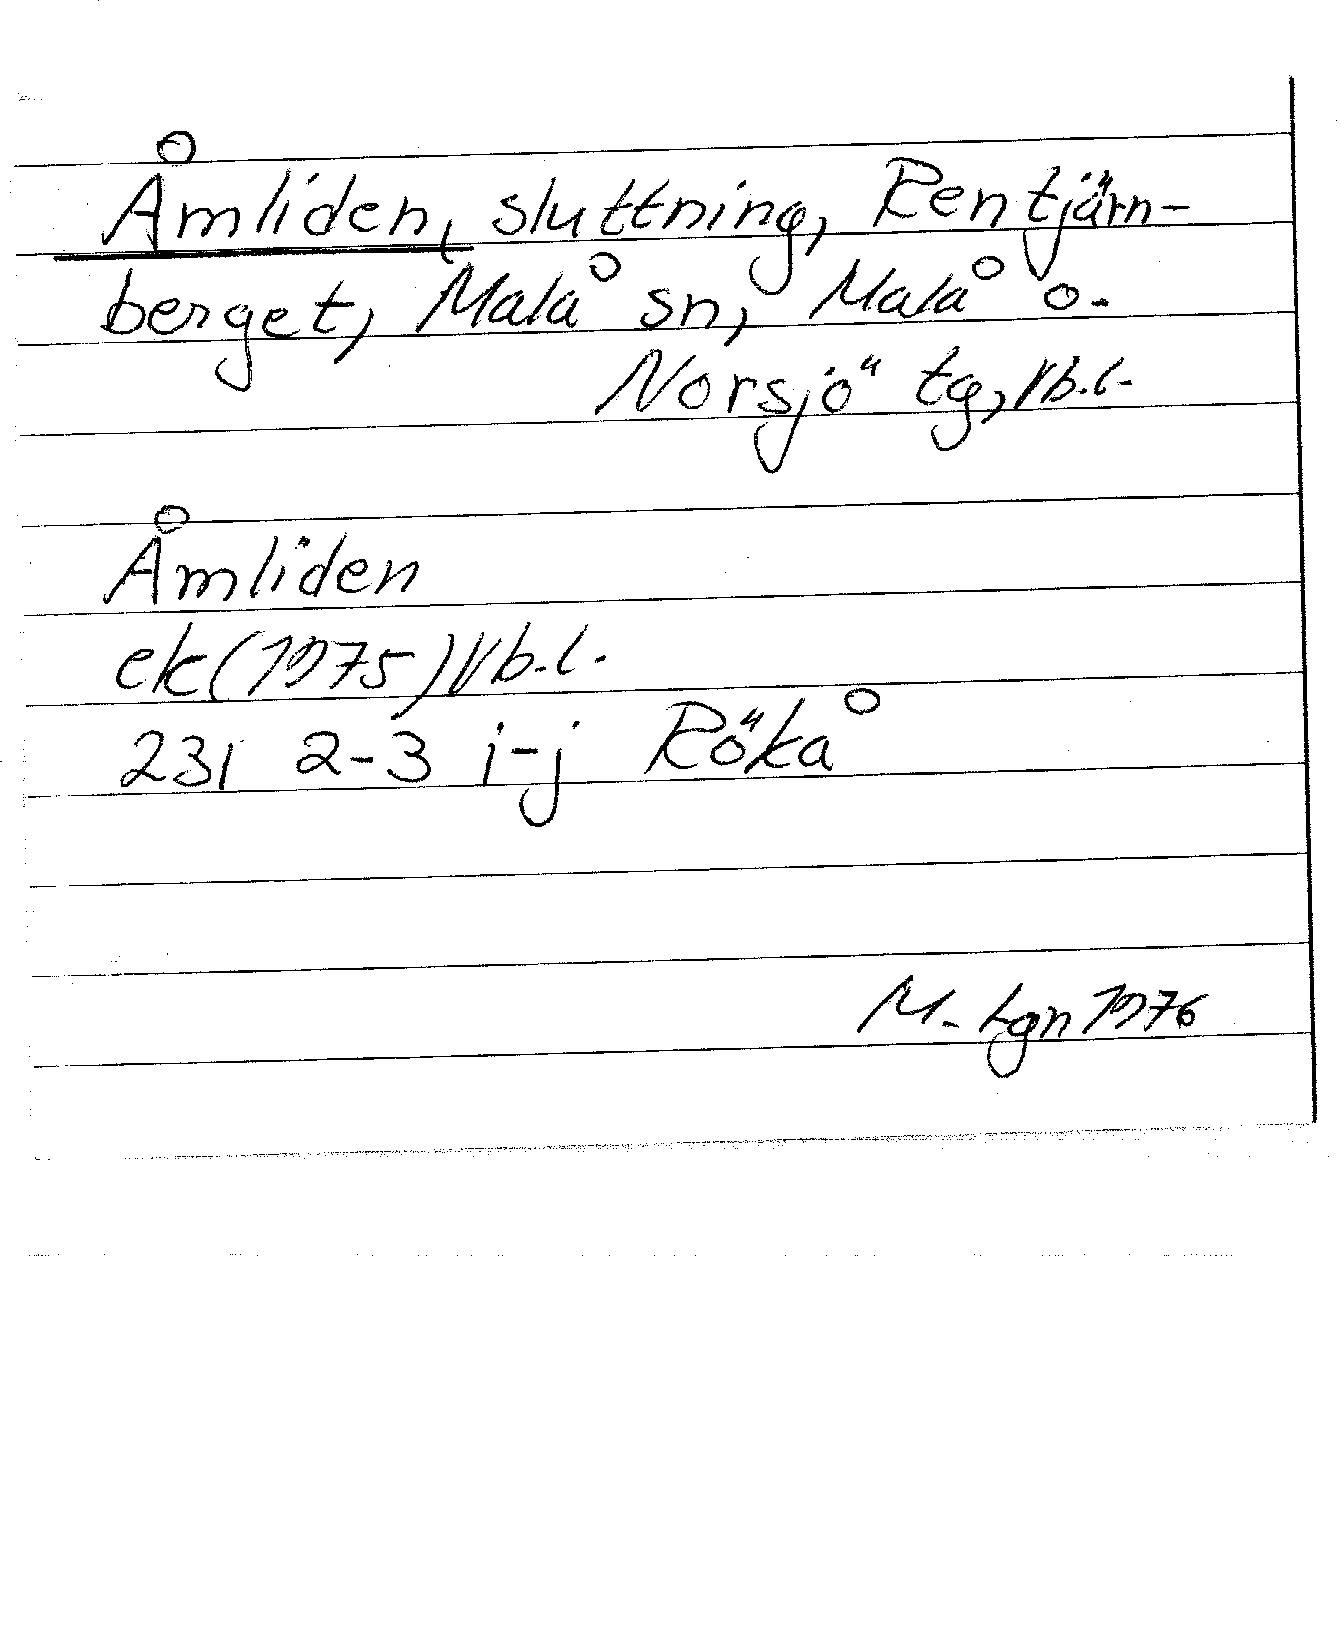 Åmliden, sluttning, Rentjärn-
berget, Malå sn, Malå o.
Norsjö tg, Vb.l.
Åmliden
ek (1975) Vb.l.
23I 2-3 i-j Röka̐
M. Lgn 1976